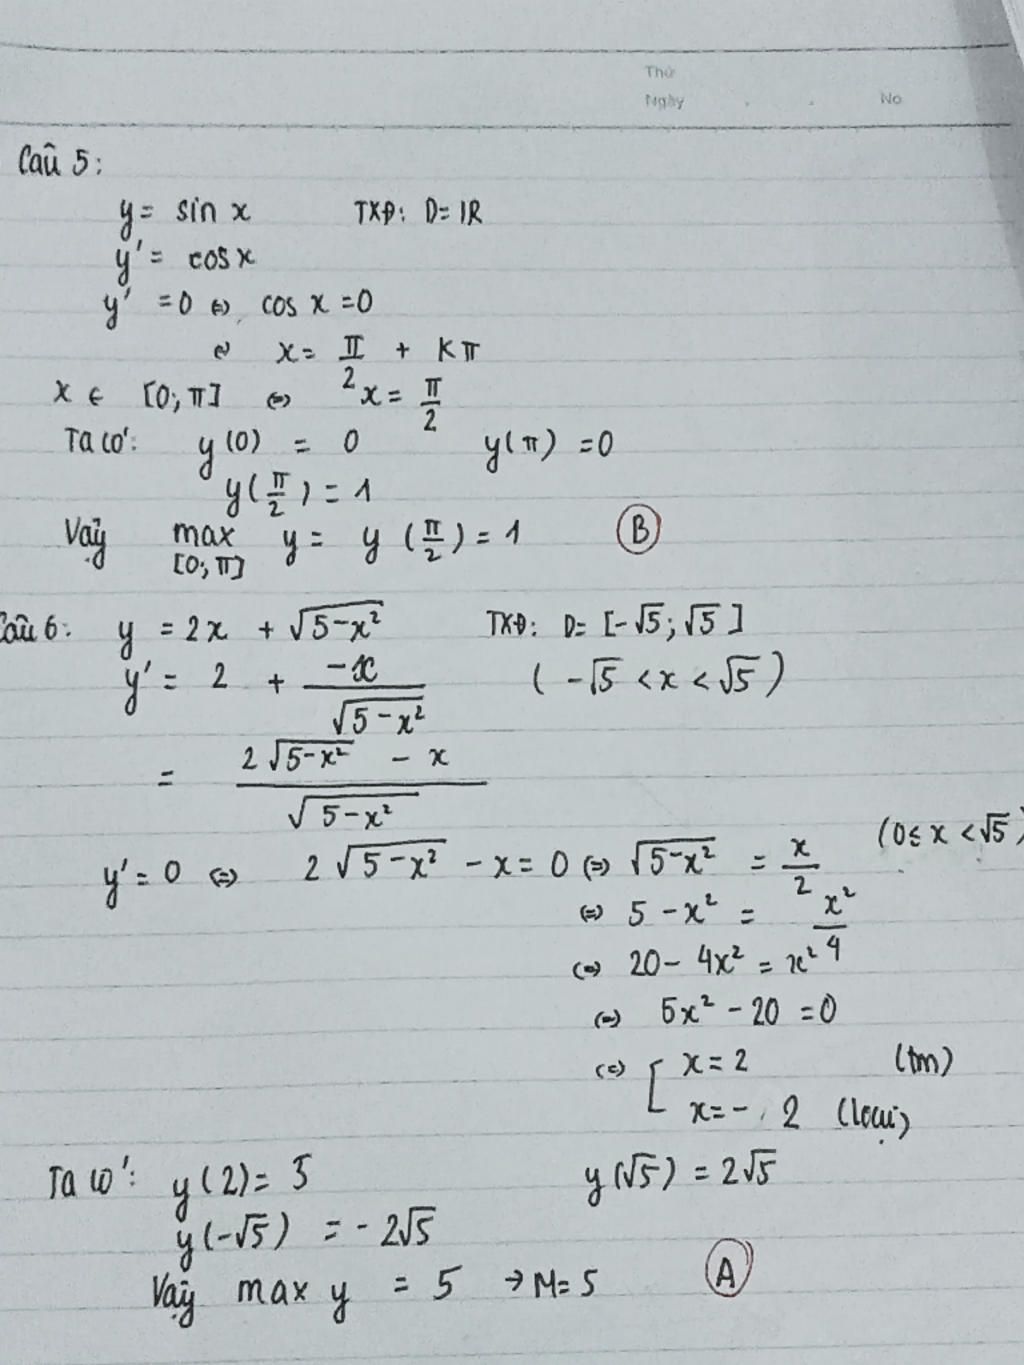 Thứ
Ngày . . No
Câu 5:
y = sin x TXĐ: D = IR
y' = cos x
y' = 0 ⇔ cos x = 0
⇔ x = π/2 + kπ
x ∈ [0; π] ⇔ x = π/2
Ta có: y(0) = 0 y(π) = 0
y(π/2) = 1
Vậy max y = y(π/2) = 1 B
[0; π]
Câu 6: y = 2x + √(5-x²) TXĐ: D = [-√5; √5]
y' = 2 + -x/√(5-x²) (-√5 < x < √5)
= (2√(5-x²) - x)/√(5-x²)
y' = 0 ⇔ 2√(5-x²) - x = 0 ⇔ √(5-x²) = x/2 (0 ≤ x < √5)
⇔ 5 - x² = x²/4
⇔ 20 - 4x² = x²
⇔ 5x² - 20 = 0
⇔ [ x = 2 (tm)
x = - 2 (loại)
Ta có: y(2) = 5 y(√5) = 2√5
y(-√5) = -2√5
Vậy max y = 5 → M = 5 A